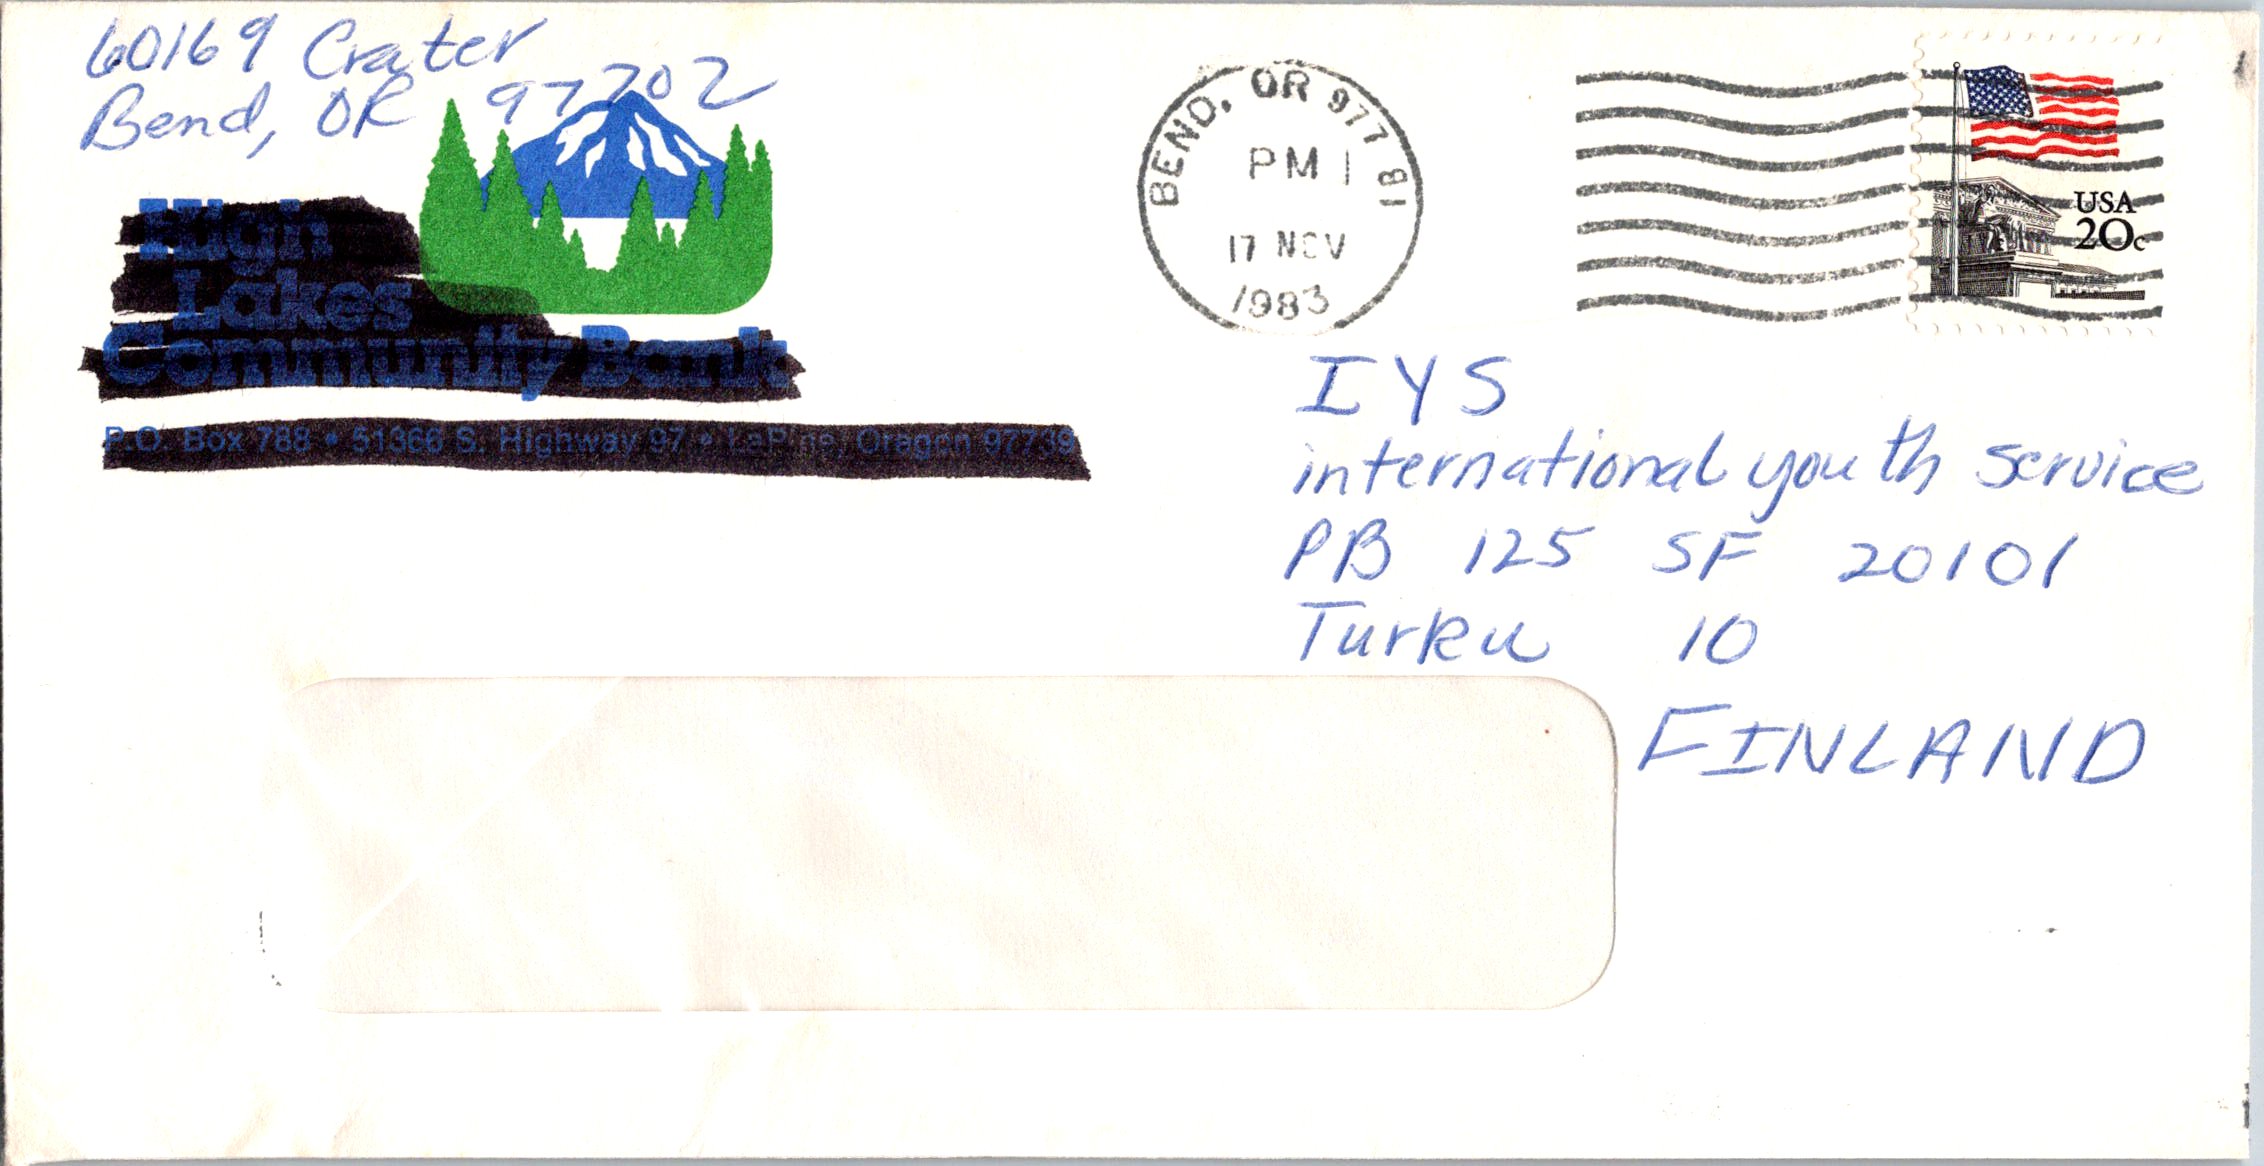 60169 Crater
Bend, OR 97702
High
Lakes
Community Bank
P.O. Box 788 • 51366 S. Highway 97 • LaPine, Oregon 97739
BEND, OR 977 81
PM 1
17 NOV
1983
USA
20c
IYS
international youth service
PB 125 SF 20101
Turku 10
FINLAND